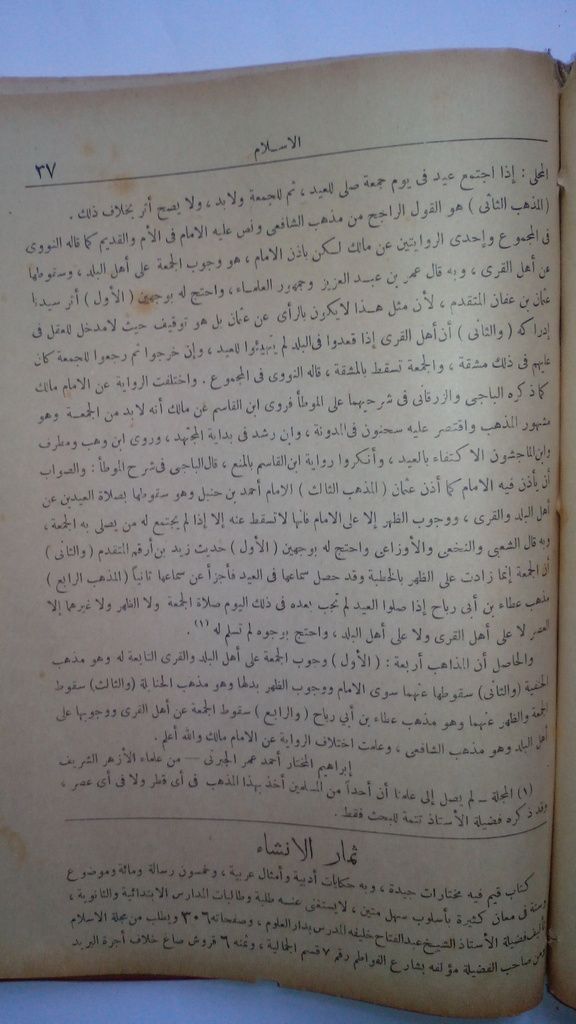 الاسلام
٣٧
المحلى : إذا اجتمع عيد فى يوم جمعة صلى للعيد ، ثم للجمعة ولابد ، ولا يصح أثر بخلاف ذلك .
(المذهب الثانى) هو القول الراجح من مذهب الشافعى ونص عليه الامام فى الأم والقديم كما قاله النووى
فى المجموع وإحدى الروايتين عن مالك لكن باذن الامام ، هو وجوب الجمعة على أهل البلد ، وسقوطها
عن أهل القرى ، وبه قال عمر بن عبد العزيز وجمهور العلماء ، واحتج له بوجهين (الأول) أثر سيدنا
عثمان بن عفان المتقدم ، لأن مثل هذا لايكون بالرأى عن عثمان بل هو توقيف حيث لامدخل للعقل فى
إدراكه (والثانى) أن أهل القرى إذا قعدوا فى البلد لم يتهيئوا للعيد ، وإن خرجوا ثم رجعوا للجمعة كان
عليهم فى ذلك مشقة ، والجمعة تسقط بالمشقة ، قاله النووى فى المجموع . واختلفت الرواية عن الامام مالك
كما ذكره الباجى والزرقانى فى شرحيهما على الموطأ فروى ابن القاسم عن مالك أنه لابد من الجمعة وهو
مشهور المذهب واقتصر عليه سحنون فى المدونة ، وابن رشد فى بداية المجتهد ، وروى ابن وهب ومطرف
وابن الماجشون الاكتفاء بالعيد ، وأنكروا رواية ابن القاسم بالمنع ، قال الباجى فى شرح الموطأ : والصواب
أن يأذن فيه الامام كما أذن عثمان (المذهب الثالث) الامام أحمد بن حنبل وهو سقوطها بصلاة العيدين عن
أهل البلد والقرى ، ووجوب الظهر إلا على الامام فانها لاتسقط عنه إلا إذا لم يجتمع له من يصلى به الجمعة ،
وبه قال الشعبى والنخعى والأوزاعى واحتج له بوجهين (الأول) حديث زيد بن أرقم المتقدم (والثانى)
أن الجمعة إنما زادت على الظهر بالخطبة وقد حصل سماعها فى العيد فأجزأ عن سماعها ثانياً (المذهب الرابع)
مذهب عطاء بن أبى رباح إذا صلوا العيد لم تجب بعده فى ذلك اليوم صلاة الجمعة ولا الظهر ولا غيرهما إلا
العصر لا على أهل القرى ولا على أهل البلد ، واحتج بوجوه لم تسلم له (١) .
والحاصل أن المذاهب أربعة : (الأول) وجوب الجمعة على أهل البلد والقرى التابعة له وهو مذهب
الحنفية (والثانى) سقوطها عنهما سوى الامام ووجوب الظهر بدلها وهو مذهب الحنابلة (والثالث) سقوط
الجمعة والظهر عنهما وهو مذهب عطاء بن أبي رباح (والرابع) سقوط الجمعة عن أهل القرى ووجوبها على
أهل البلد وهو مذهب الشافعى ، وعلمت اختلاف الرواية عن الامام مالك والله أعلم .
إبراهيم المختار أحمد عمر الجبرتى — من علماء الأزهر الشريف
(١) المجلة — لم يصل إلى علمنا أن أحداً من المسلمين أخذ بهذا المذهب فى أى قطر ولا فى أى عصر ،
وقد ذكره فضيلة الأستاذ تتمة للبحث فقط .
ثمار الانشاء
كتاب قيم فيه مختارات جيدة ، وبه حكايات أدبية وأمثال عربية ، وخمسون رسالة ومائة وموضوع
فى معان كثيرة بأسلوب سهل متين ، لايستغنى عنه طلبة وطالبات المدارس الابتدائية والثانوية ،
تأليف فضيلة الأستاذ الشيخ عبد الفتاح خليفه المدرس بدار العلوم ، وصفحاته ٣٠٦ ويطلب من مجلة الاسلام
ومن صاحب الفضيلة مؤلفه بشارع القواطم رقم ٧ قسم الجمالية ، وثمنه ٦ قروش صاغ خلاف أجرة البريد